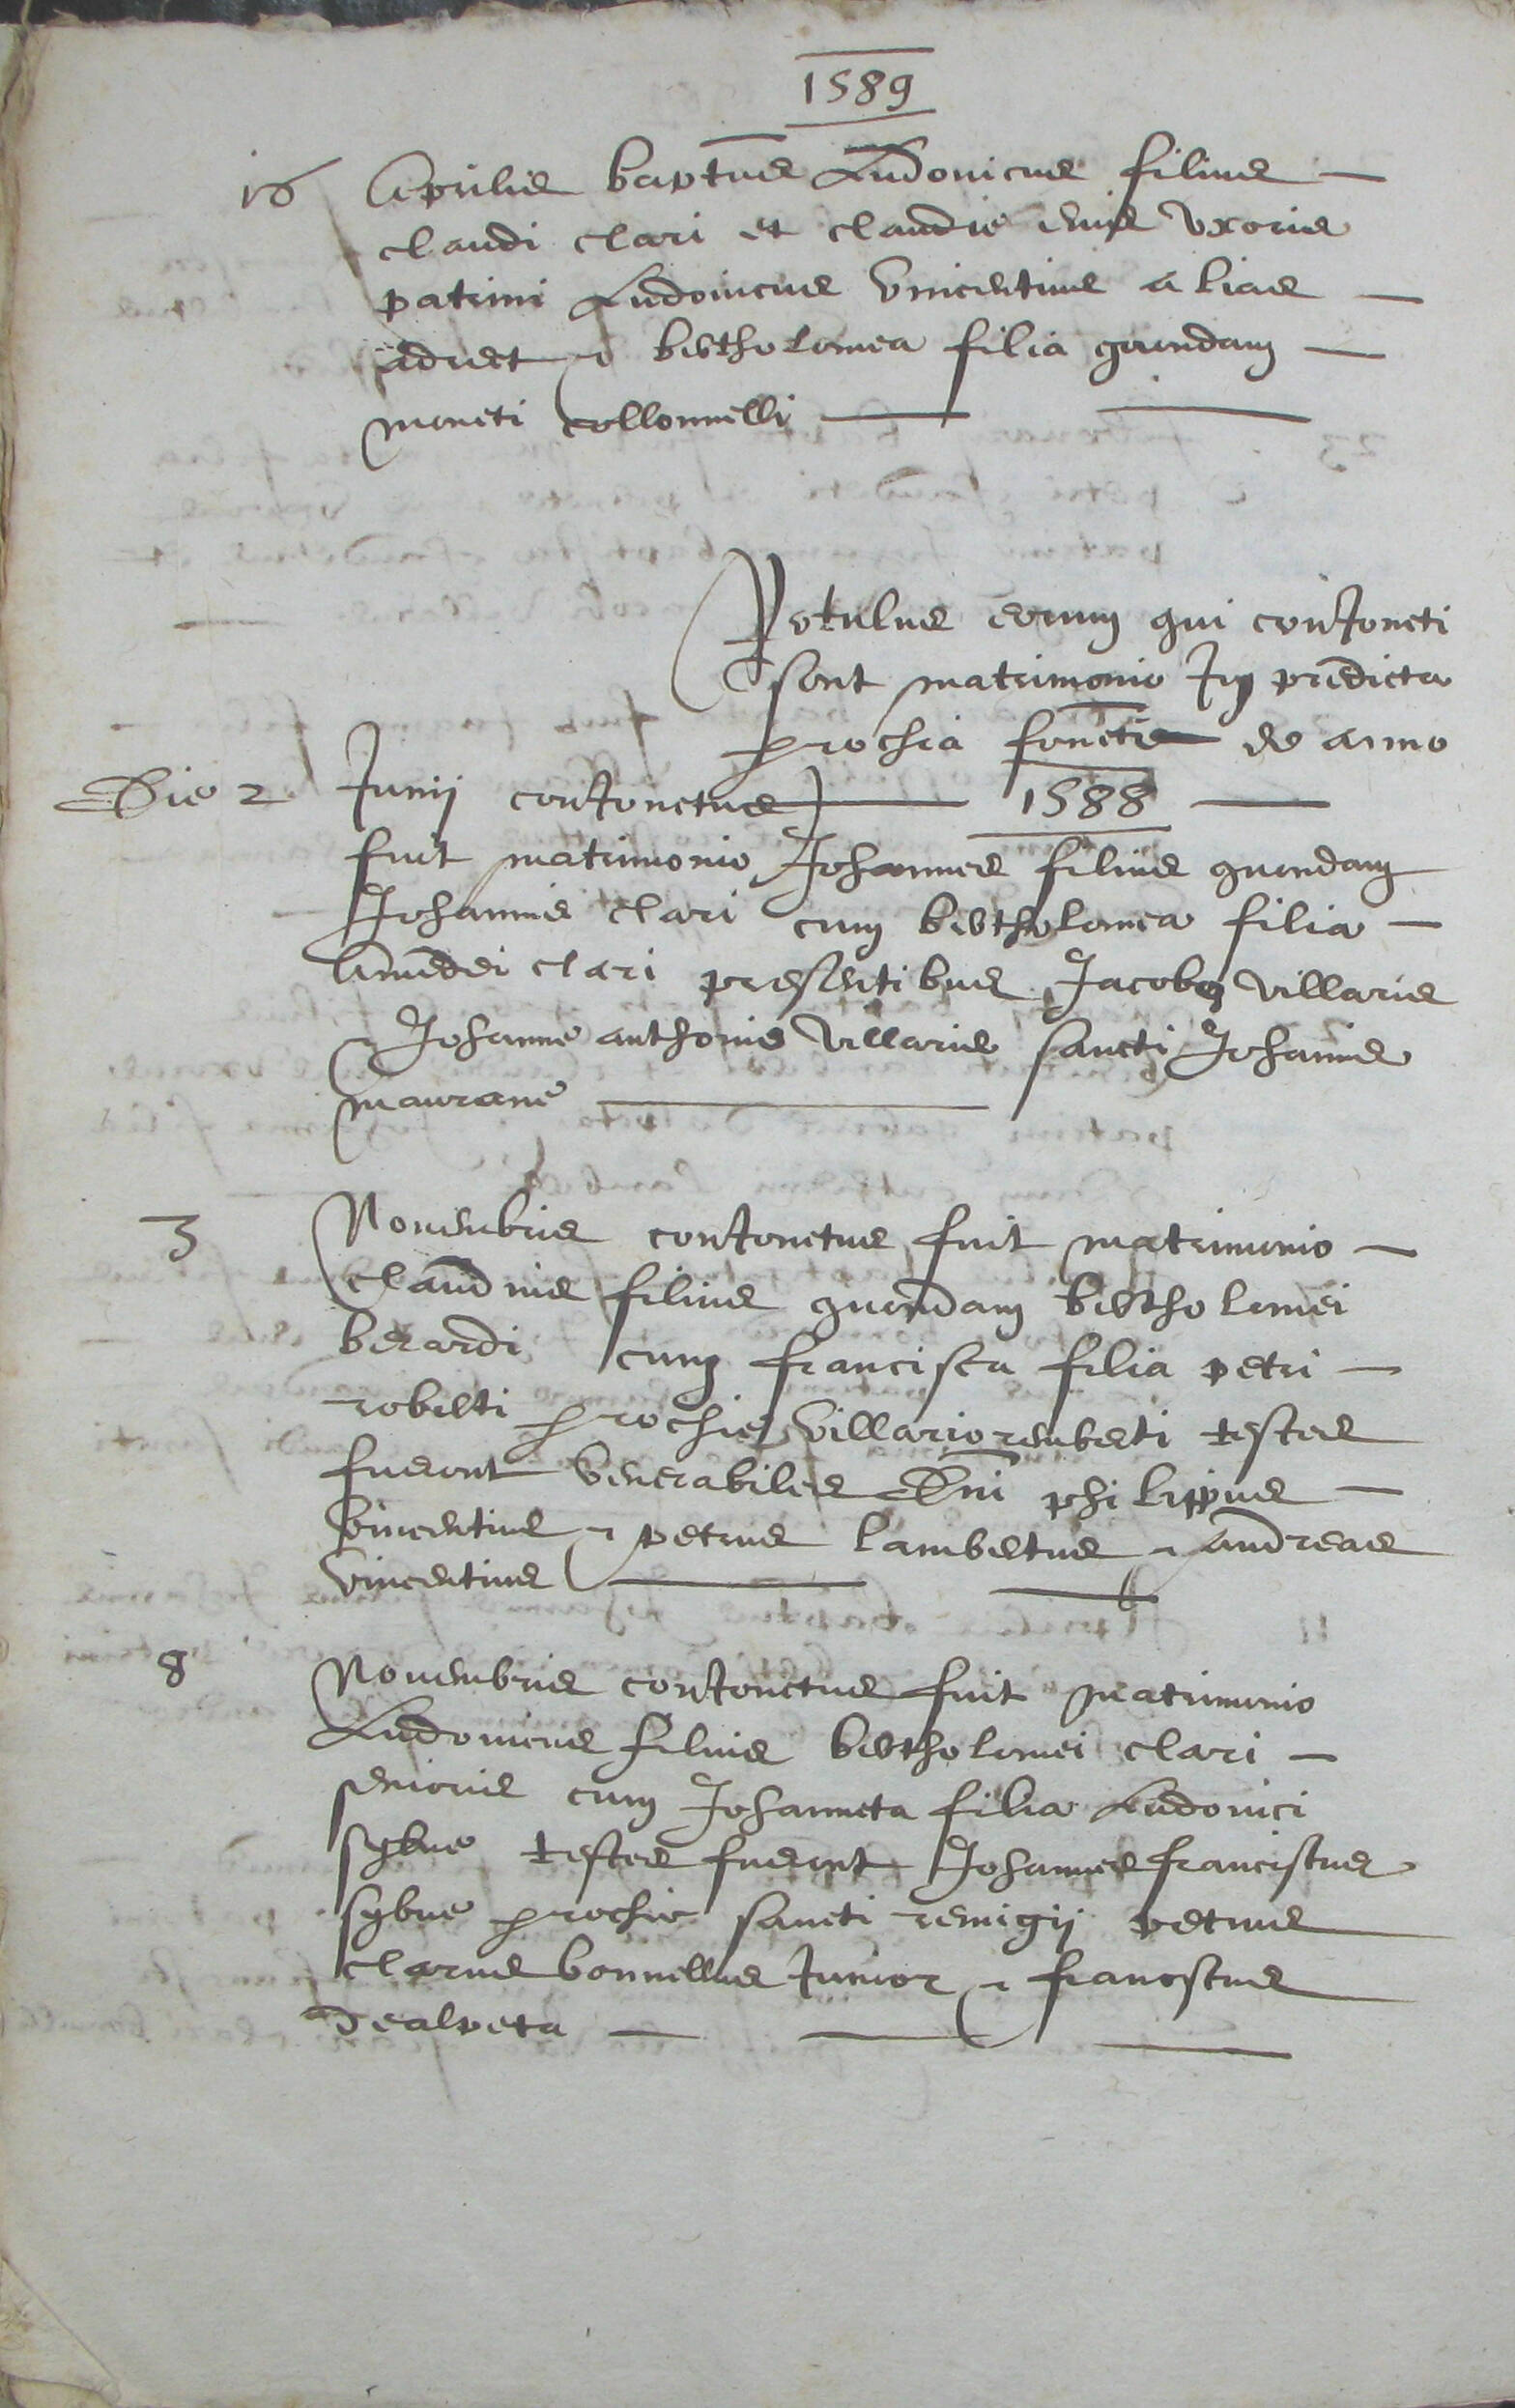 1589
16 Aprilis baptus Ludovicus filius
claudi clari et claudie eius uxoris
patrini Ludovicus Vincentius alias
adriet & bertholomea filia quondam
moneti collonnelli
Rotulus eorum qui conjoncti
sont matrimonio In predicta
parochia fonctis de anno
Die 2 Junij conjonctus 1588
fuit matrimonio Johannes filius quondam
Johannis clari cum bertholomea filia
Amedei clari presentibus Jacobo villaris
& Johanne anthonio villaris sancti Johannis
maurane
3 Novembris conjonctus fuit matrimonio
claudius filius quondam bertholomei
berardi cum francisca filia petri
roberti parochie villariorenberti testes
fueront venerabiles Dni philippus
vincentius & petrus lambertus & andreas
vincentius
8 Novembris conjonctus fuit matrimonio
Ludovicus filius bertholomei clari
senioris cum Johanneta filia Ludovici
sybue testes fueront Johannes franciscus
sybue parochie sancti remigij petrus
clarus bonnellus Junior & francscus
Dealpeta